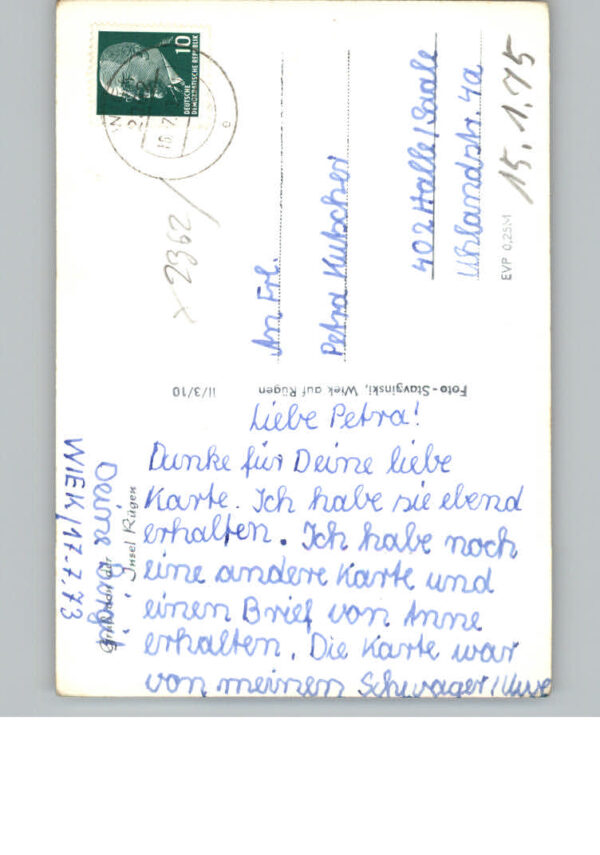 Liebe Petra!
Danke für Deine liebe
Karte. Ich habe sie ebend
erhalten. Ich habe noch
eine andere Karte und
einen Brief von Anne
erhalten. Die Karte war
von meinen Schwager/Uwe
Deine
WIEK/17.7.73
Insel Rügen
Foto-Stavginski, Wiek auf Rügen II/3/10
An Frl.
Petra Kutscher
402 Halle/Saale
Uhlandstr. 4a
EVP 0,25M
15.1.75
x 2362/
10
DEUTSCHE
DEMOKRATISCHE REPUBLIK